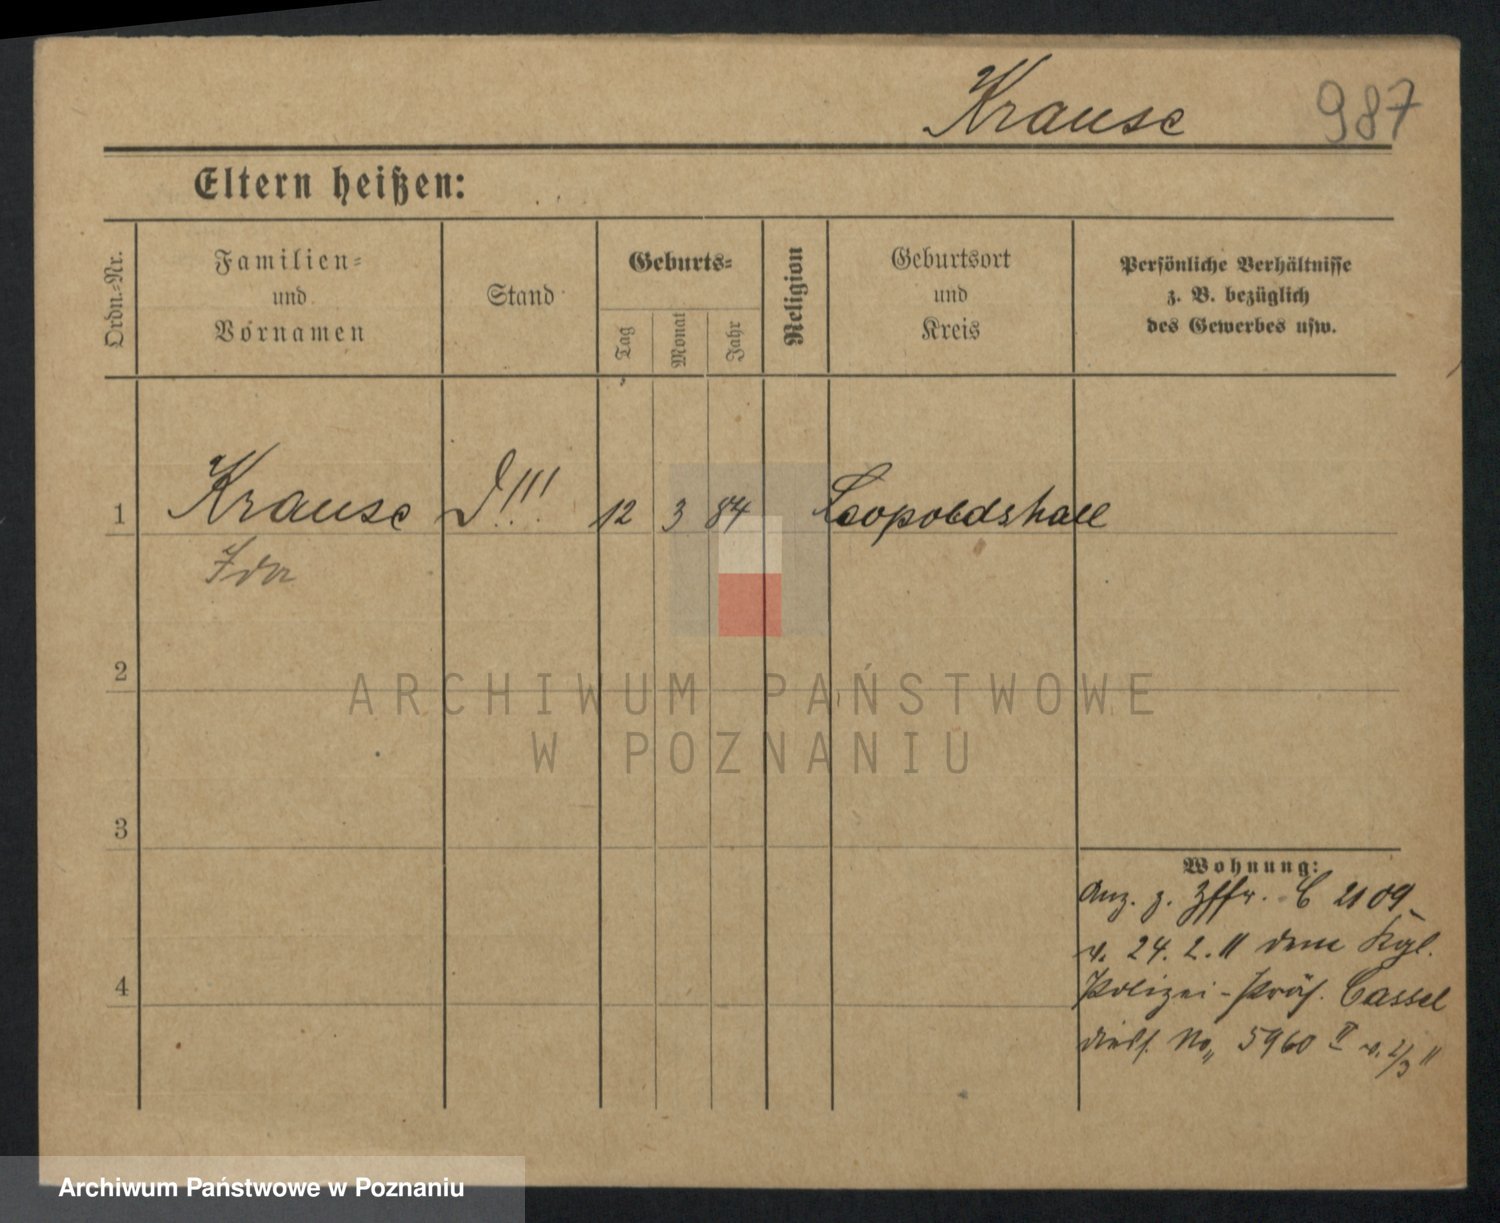 Krause 987
Eltern heißen:
Ordn.-Nr.
Familien-
und
Vornamen
Stand
Geburts-
Tag
Monat
Jahr
Religion
Geburtsort
und
Kreis
Persönliche Verhältnisse
z. B. bezüglich
des Gewerbes usw.
1 Krause !!! 12 3 84 Leopoldshall
Ida
2
3
4
Wohnung:
Anz. z. C 2109
v. 24. 2. 11 dem Kgl.
Polizei-Präs. Cassel
No 5960 II v. 2/3 11
ARCHIWUM PAŃSTWOWE
W POZNANIU
Archiwum Państwowe w Poznaniu